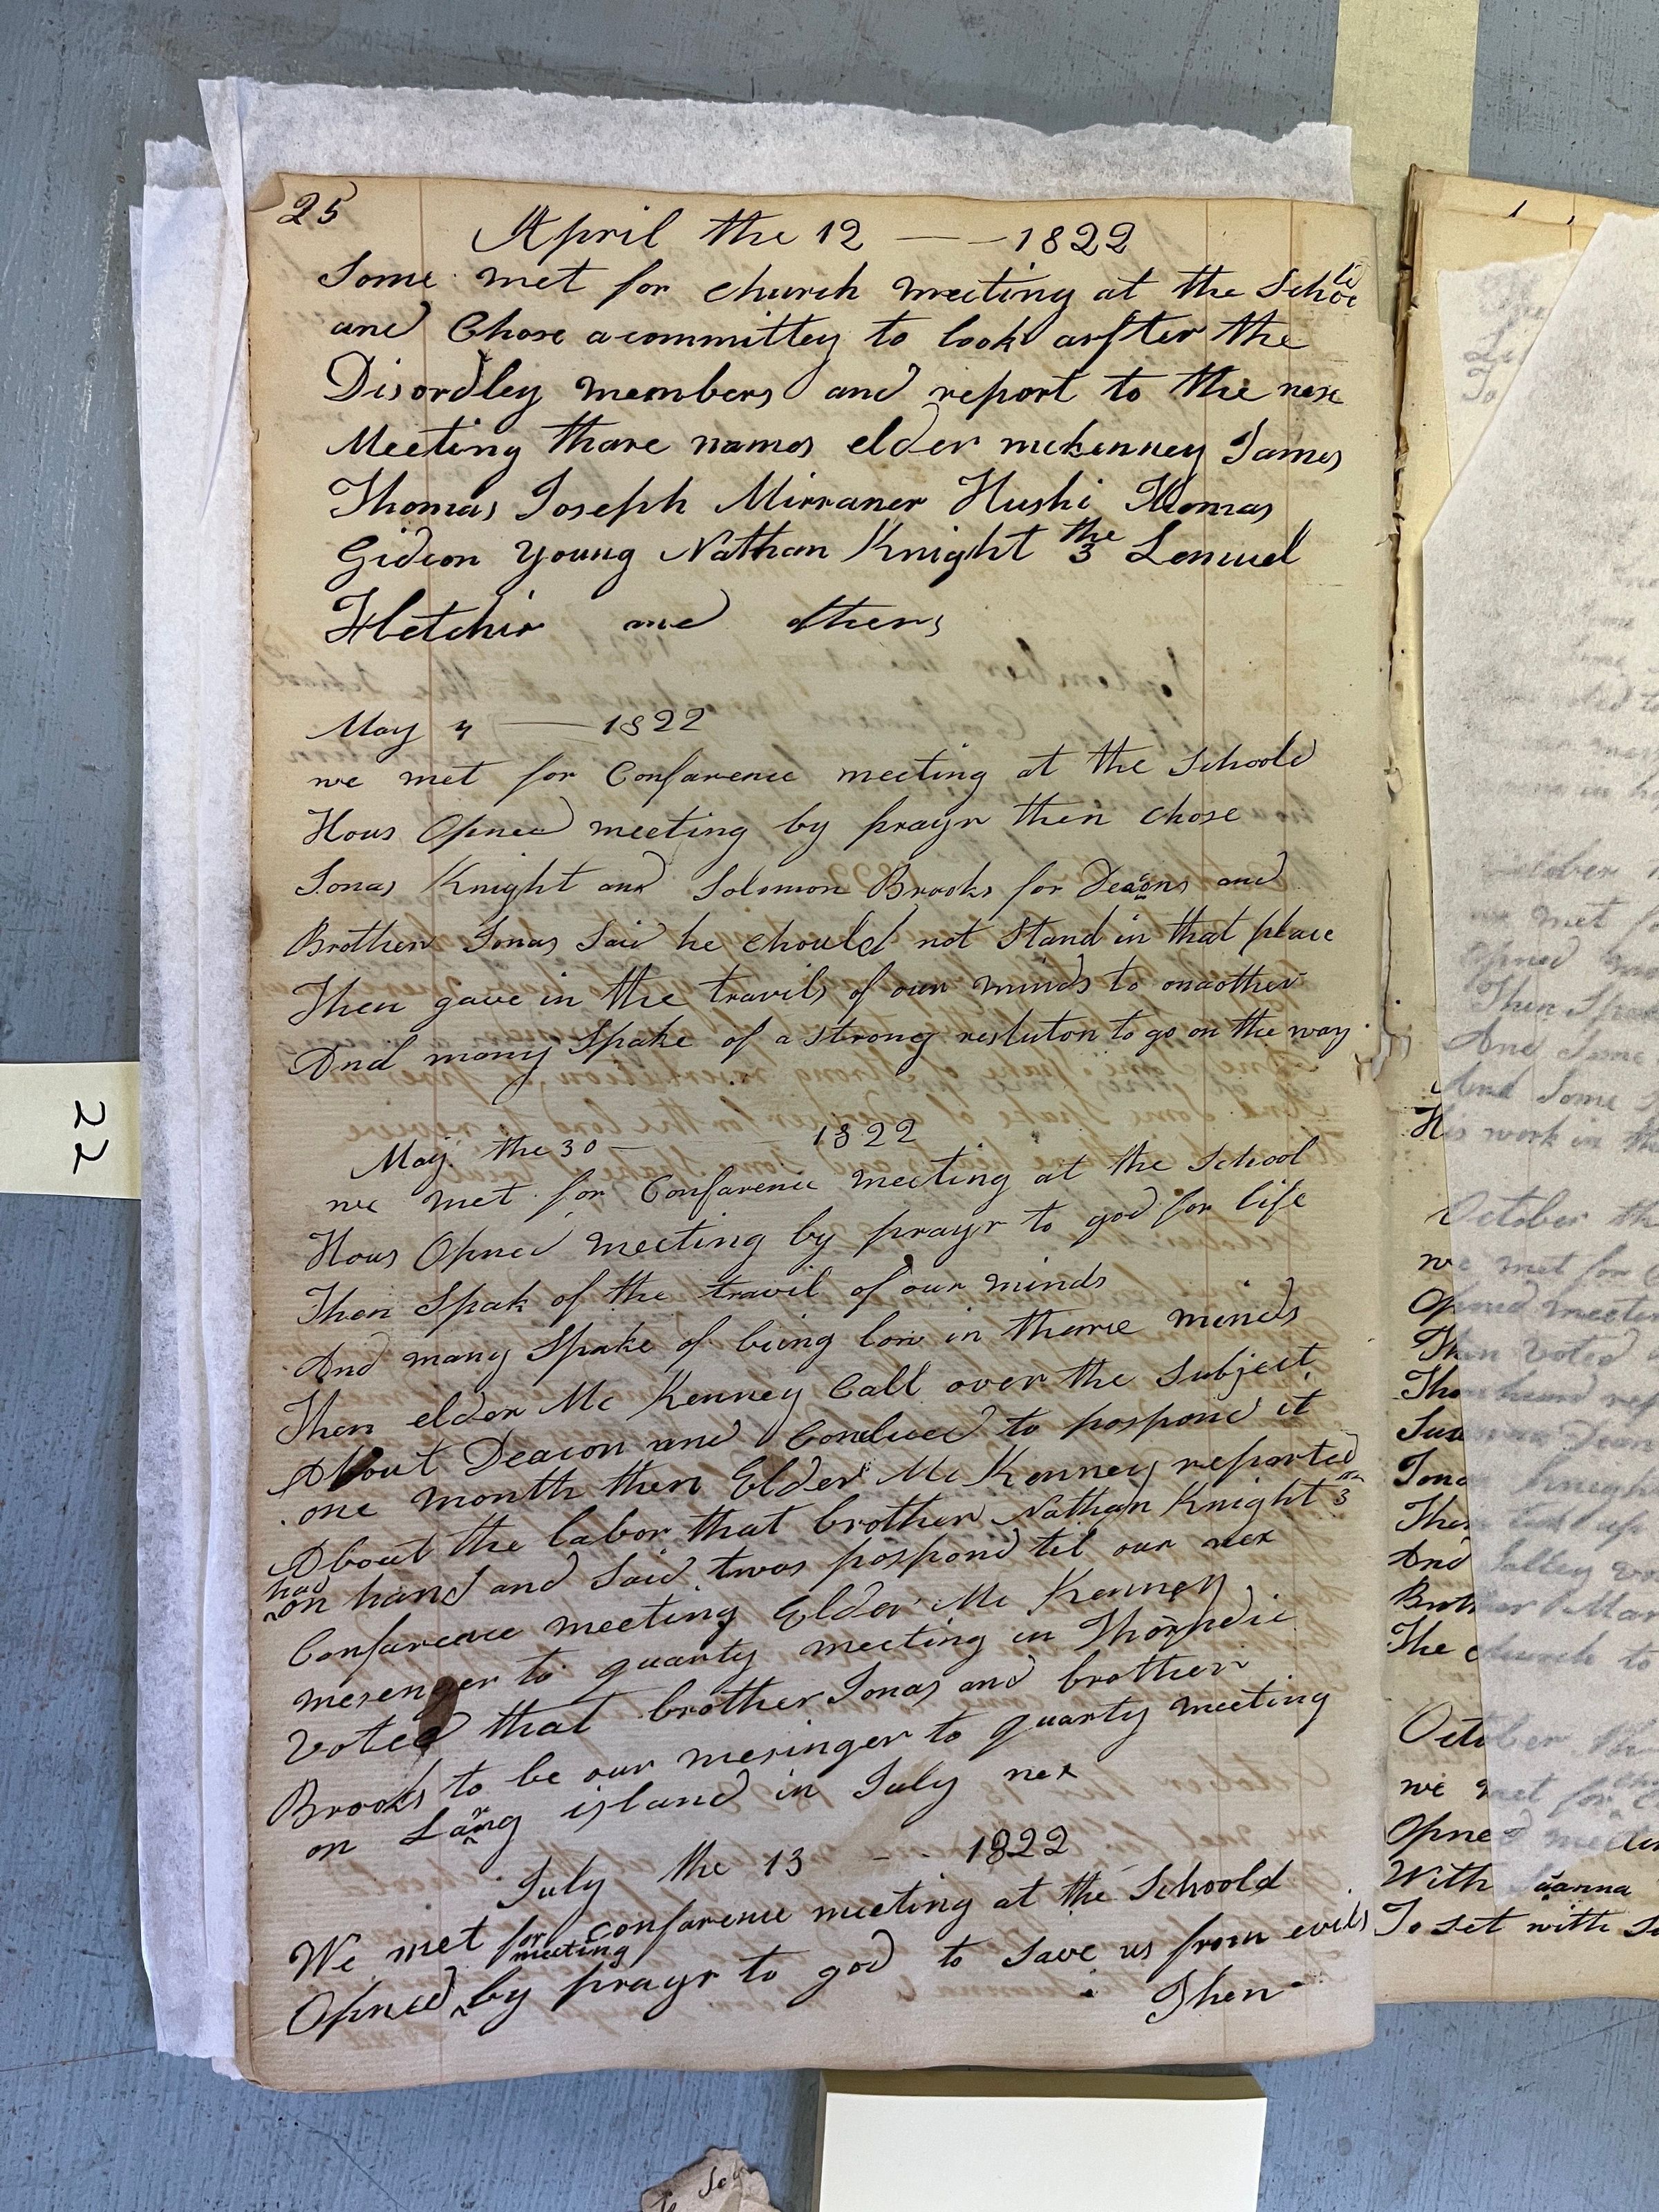 25
April the 12 — — 1822
Some met for church meeting at the Schole
and Chose a committey to look arfter the
Disordley members and report to the nex
Meeting thare names elder mckenney James
Thomas Joseph Mirraner Hushi Thomas
Gideon Young Nathan Knight the 3 Lemuel
Fletchir and others
May 4 — 1822
we met for Confarence meeting at the Schoole
Hous Opned meeting by prayr then chose
Jonas Knight and Solomon Brooks for Deacons and
Brother Jonas Said he chould not Stand in that place
Then gave in the travils of our minds to onaother
And many Spake of a strong resluton to go on the way
May the 30 — 1822
we met for Confarence meeting at the School
Hous Opned meeting by prayr to god for life
Then Spak of the travil of our minds
And many Spake of being low in thare minds
Then elder Mc Kenney Call over the Subject
About Deacon and Conclued to pospond it
one month then Elder Mc Kenney reported
About the labor that brother Nathan Knight 3
had on hand and Said twas pospond til our nex
Confarence meeting Elder Mc Kenney
mesenger to quarty meeting in Thorndic
Voted that brother Jonas and brother
Brooks to be our mesinger to quarty meeting
on Lang island in July nex
July the 13 - - 1822
We met for confarence meeting at the Schoold
Opned meeting by prayr to god to save us from evils
Then
22
October
we met for
Opned
Then Spak
And Some
And Some
His work in the
October th
we met for
Opned meetin
Then Voted
Then heard rep
Jonas Knight
And Salley
Brother Mar
The church to
October the
we met for
Opned meetin
With
To set with